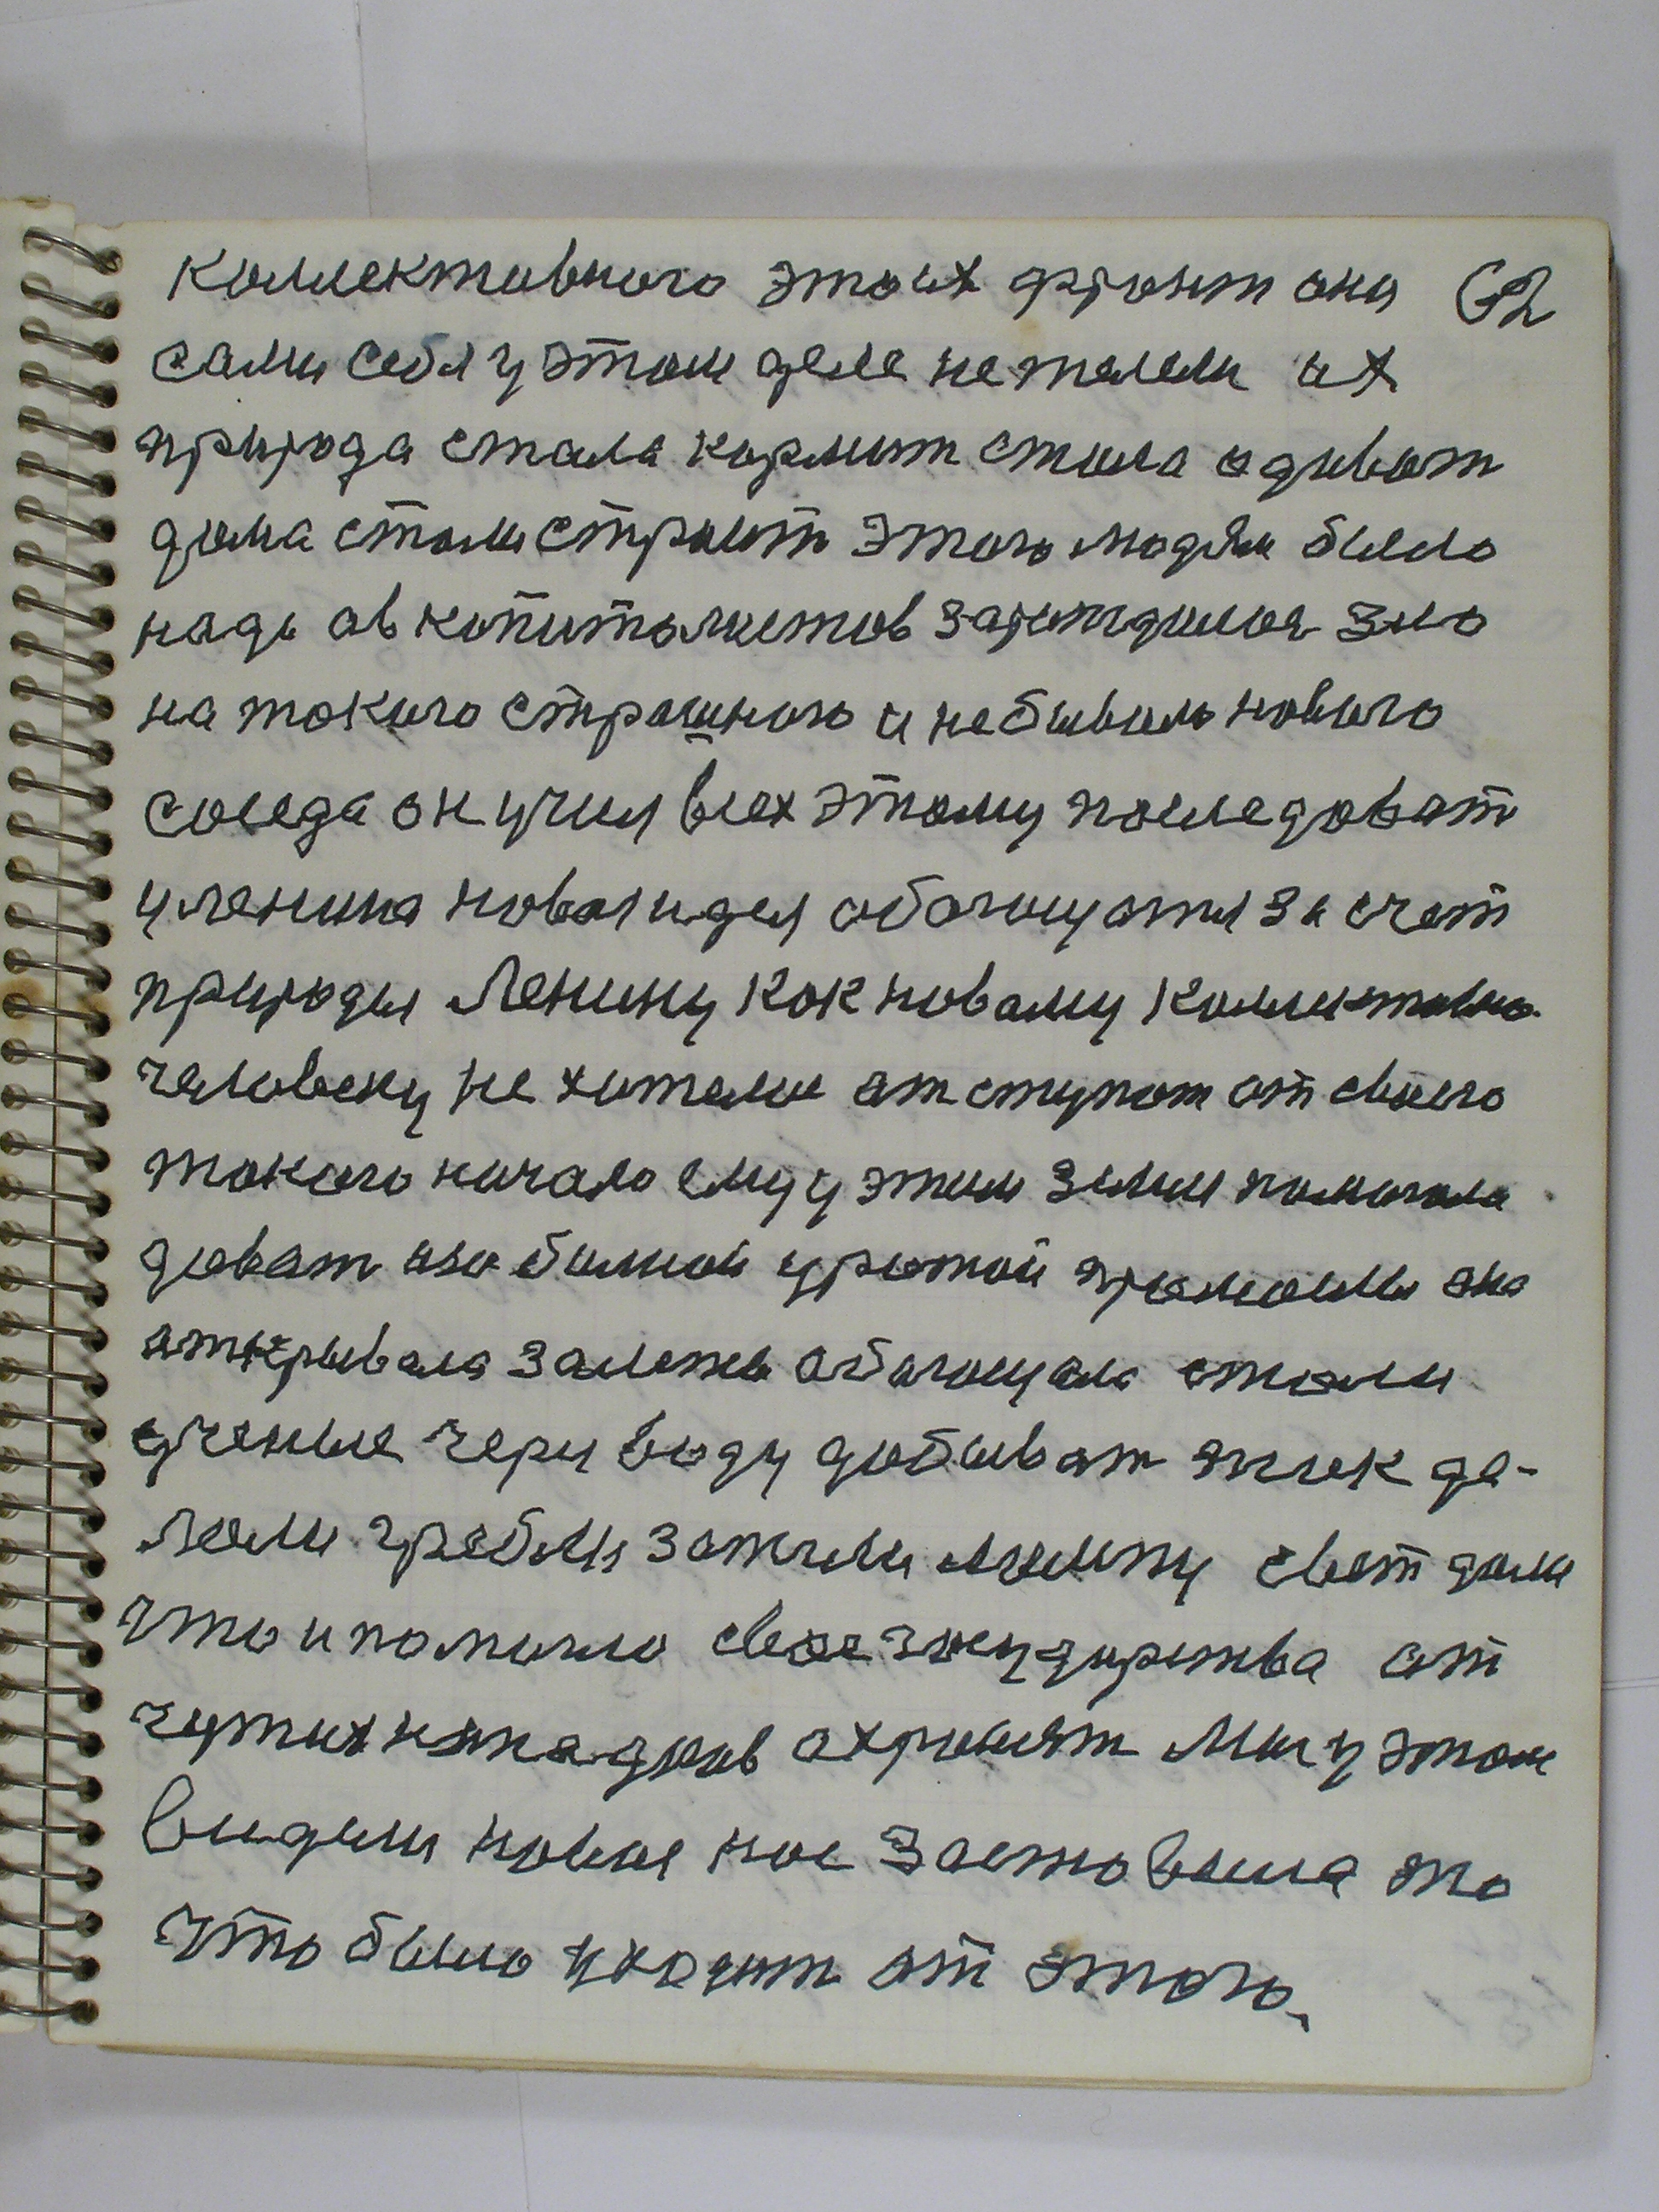 коллективного это их фронт они 62
сами себя у этом деле не жалели их
природа стала кормит стала одиват
дома стали строить этого людям было
надо ав копиталистов зараждилася зло
на такого страшного и небывало нового
соседа он учил всех этому последоват
у ленина новая идея обогощатся за счет
природы Ленину как новаму коллективно
человеку не хотелое атступат от своего
такого начало ему у этим земля помогала
дават изобилной урожай промыш она
аткрывала залежи обогощала стали
ученые через воду добыват ток де-
лали гребли зажгли лампу свет дали
что и помогло свое государства от
чужих нападков охронят Мы у этом
видим новое нас заставила то
что было уходит от этого